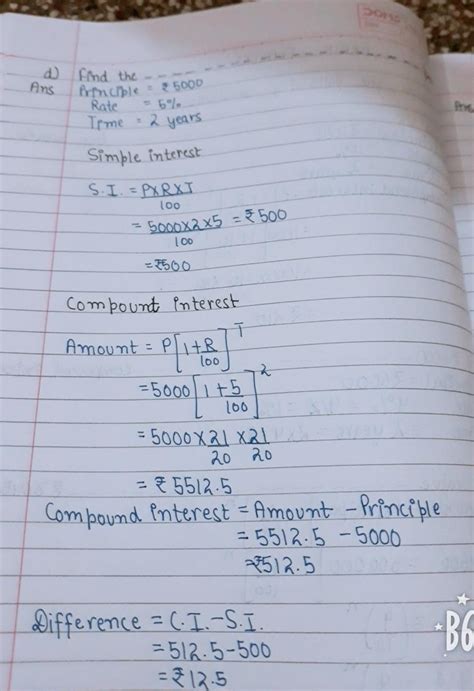 d) Find the
Ans Principle = ₹ 5000
Rate = 5%
Time = 2 years
Simple interest
S.I. = PXRXT
100
= 5000×2×5 = ₹ 500
100
= ₹500
Compount interest
Amount = P[1+R]T
100
= 5000[1+5]2
100
= 5000×21 ×21
20 20
= ₹ 5512.5
Compound interest = Amount - Principle
= 5512.5 - 5000
= ₹512.5
Difference = C.I.-S.I.
= 512.5-500
= ₹ 12.5